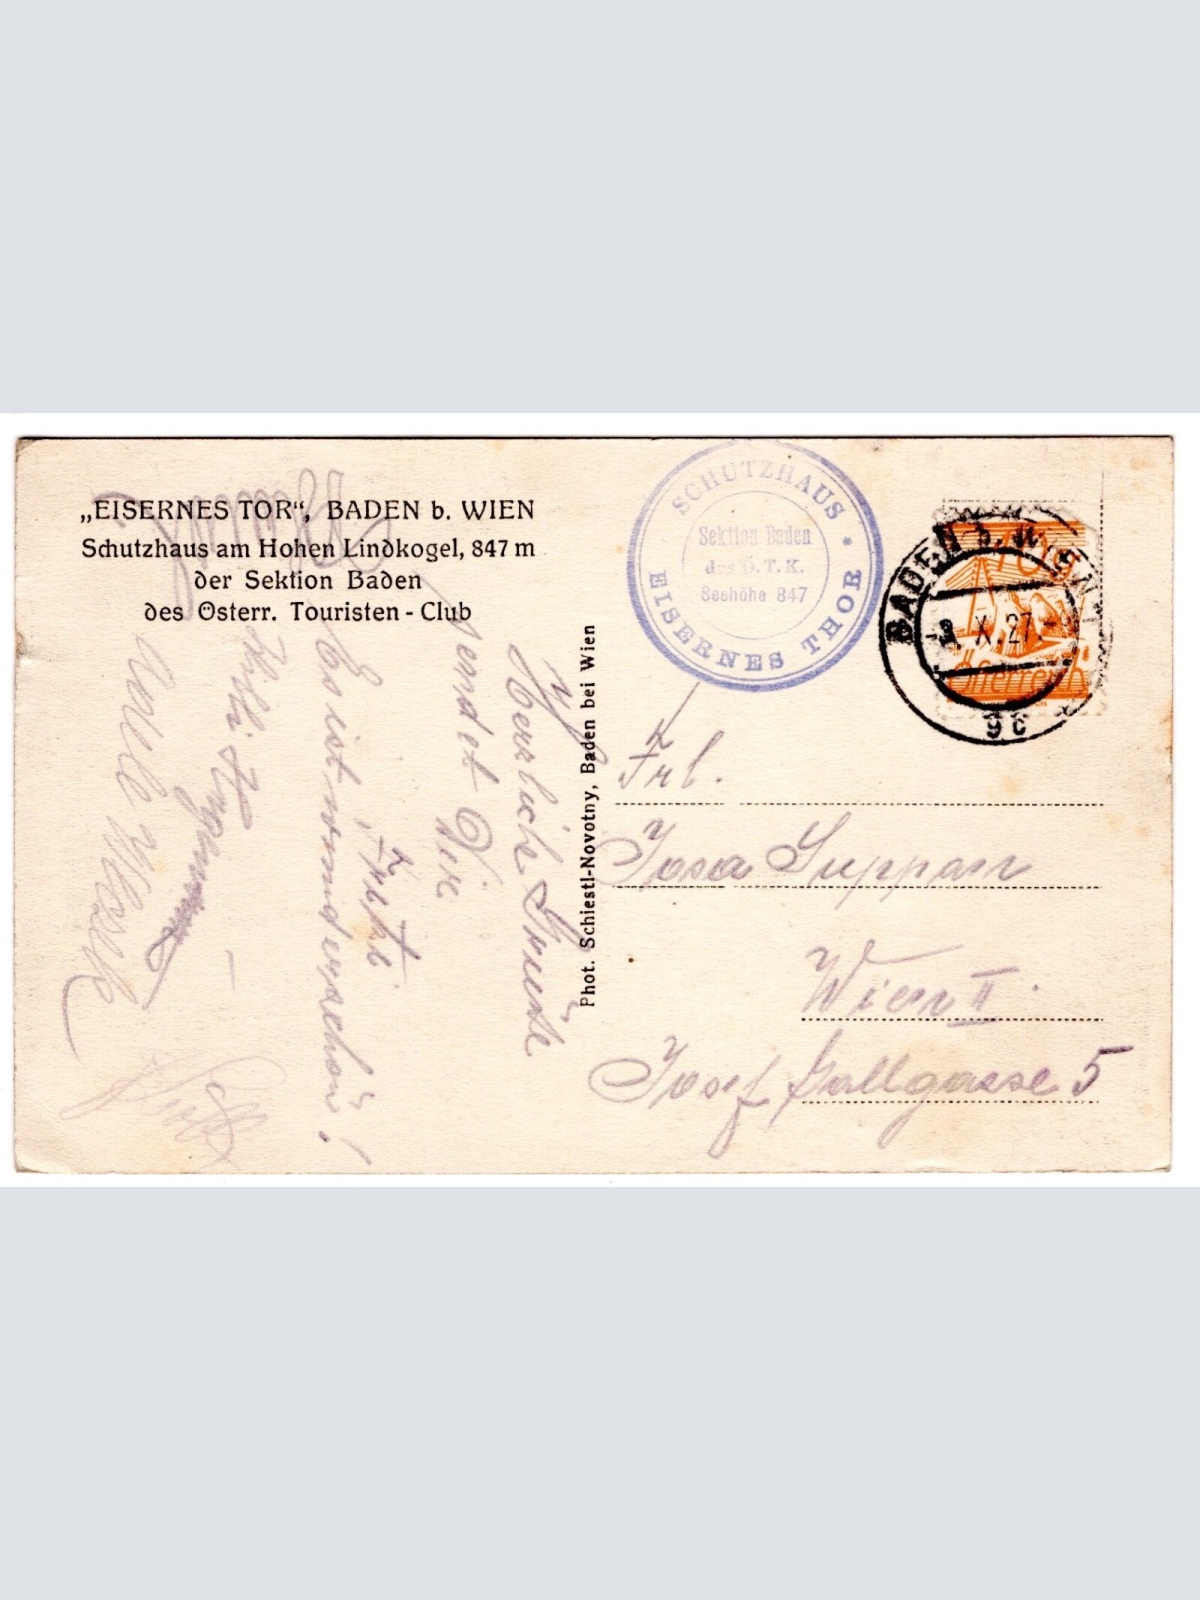 „EISERNES TOR“, BADEN b. WIEN
Schutzhaus am Hohen Lindkogel, 847 m
der Sektion Baden
des Österr. Touristen-Club
Herzliche Grüße
sendet Dir
Es ist wunderschön!
Phot. Schiestl-Novotny, Baden bei Wien
SCHUTZHAUS
Sektion Baden
des Ö.T.K.
Seehöhe 847
EISERNES THOR
BADEN b. W
X.27.
9c
10g
Österreich
Frl.
Josa Suppan
Wien II.
Josef Gallgasse 5